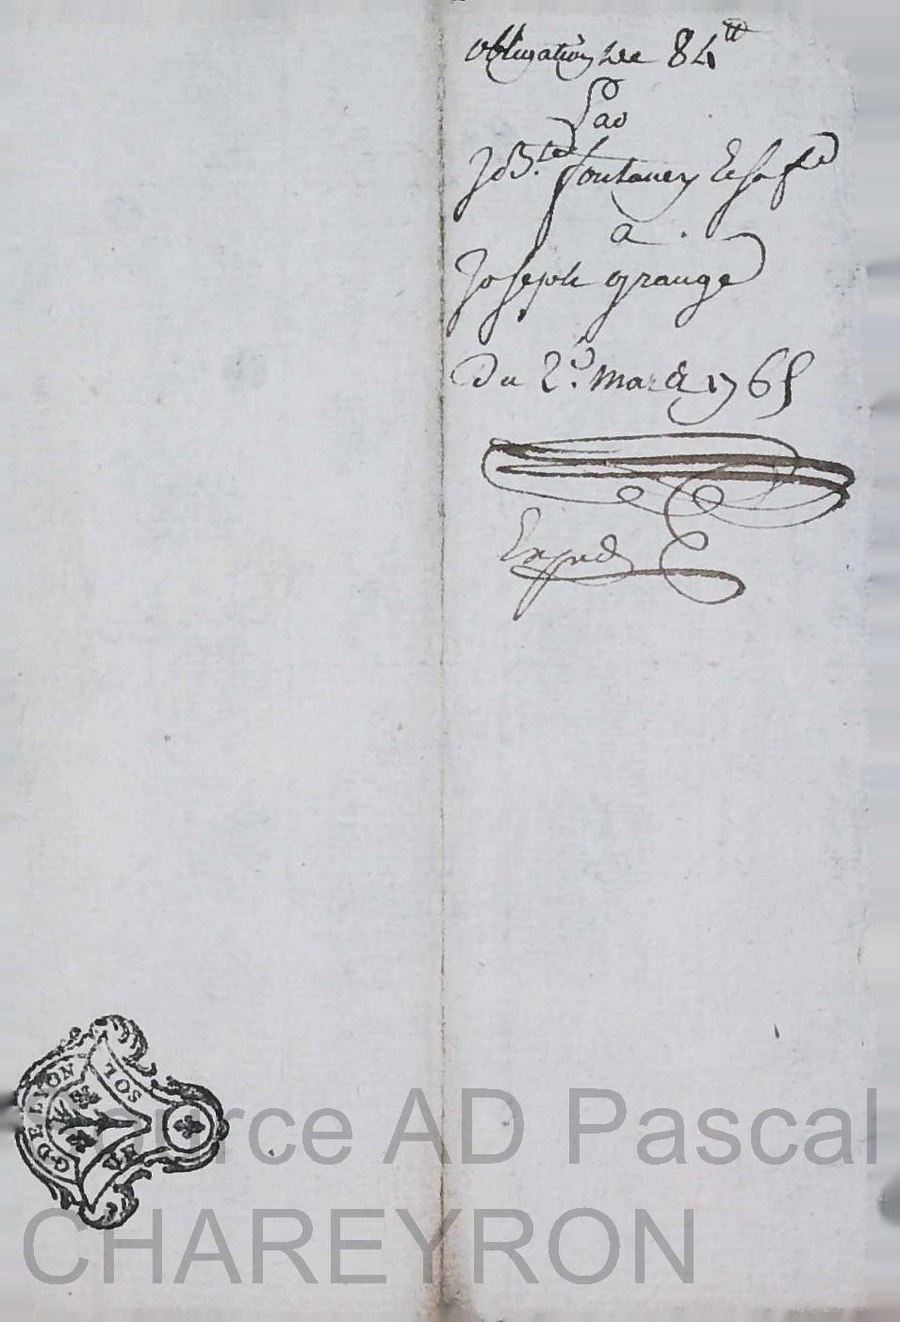 obligation de 84 ₶
Par
J B.te fontaney & sa f.e
a
Joseph grange
Du 2.d Mars 1765
Exped
G. DE LYON
SOL
Source AD Pascal
CHAREYRON